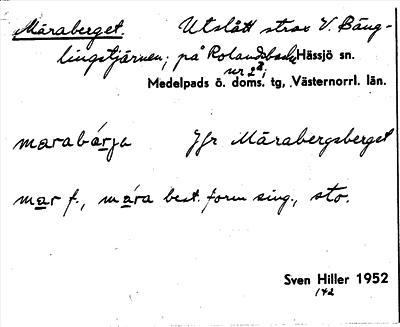 Märaberget. Utslått strax V. Bäng-
lingstjärnen; på Rolandsbacke Hässjö sn.
nr 2²;
Medelpads ö. doms. tg, Västernorrl. län.
marabárja Jfr Märabergsberget
mar f., mára best. form sing., sto.
Sven Hiller 1952
142